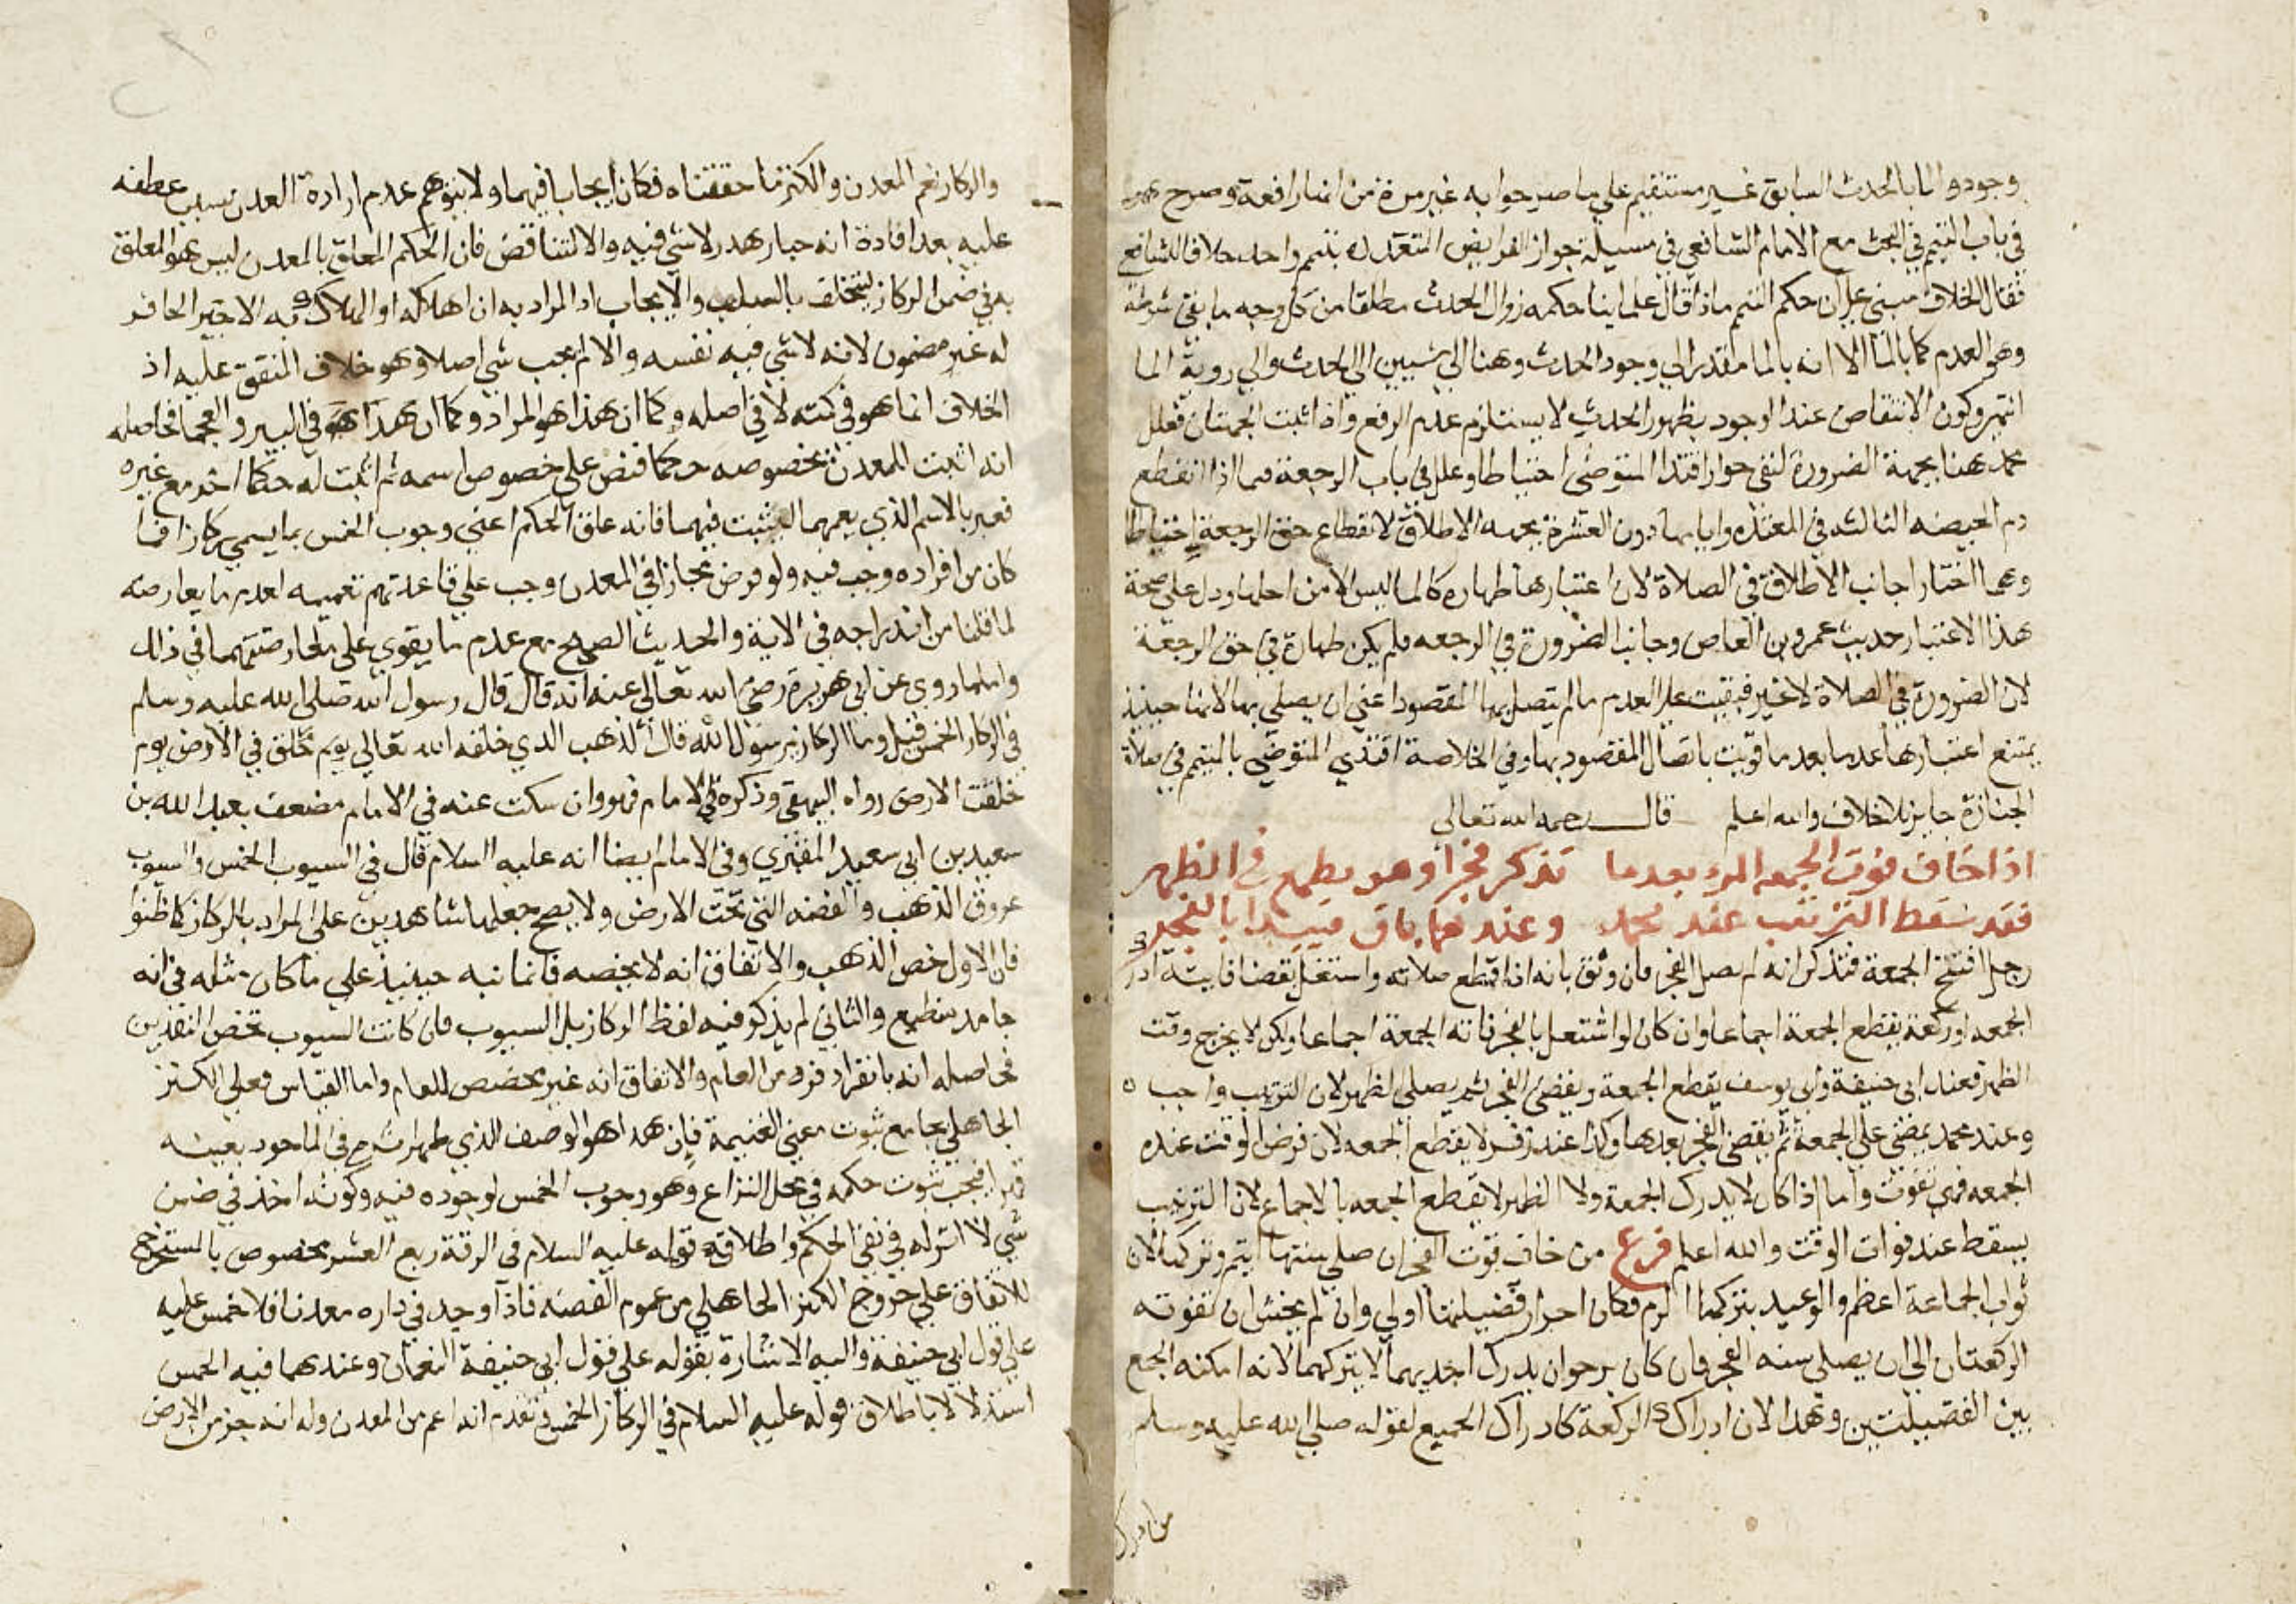 وجود الما بالحدث السابق غير مستقيم علي ما صرحوا به غير مرة من انها رافعة وصرح
في باب التيمم في البحث مع الامام الشافعي في مسيلة جواز الفرايض المتعدده بتيمم واحد خلافا للشافعي
فقال الخلاف مبني علي ان حكم التيمم ماذا قال علماينا حكمه زوال الحدث مطلقا من كل وجه ما بقي شرطه
وهو العدم كما بالما الا انه بالما مقدر الي وجود الحدث وهنا الي شيين الي الحدث والي روية الما
انتهي وكون الانتقاض عند الوجود بظهور الحدث لا يستلزم عدم الرفع واذا ثبت الجهتان فعلل
محمد هنا بجهة الضرورة لنفي جواز اقتدا المتوضي احتياطا وعلل في باب الرجعة فيما اذا انقطع
دم الحيضه الثالثه في المعتده وايامها دون العشرة بجهه الاطلاق لانقطاع حق الرجعة احتياطا
وهما اختارا جانب الاطلاق في الصلاة لان اعتبارها طهاره كالما ليس الا من اجلها ودل علي صحة
هذا الاعتبار حديث عمرو بن العاص وجانب الضرورة في الرجعه فلم يكن طهارة في حق الرجعة
لان الضرورة في الصلاة لا غير فبقيت علي العدم ما لم يتصل بها المقصود اعني ان يصلي بها لانها حينيذ
يمتنع اعتبارها عدما بعدما قويت باتصال المقصود بها وفي الخلاصة اقتدي المتوضي بالمتيمم في صلاة
الجنازة جايز بلا خلاف والله اعلم قال رحمه الله تعالي
اذا خاف فوت الجمعه المرء بعدما تذكر فجرا وهو يطمع في الظهر
فقد سقط الترتيب عند محمد وعندهما باق فيبدا بالفجر
رجل افتتح الجمعة فتذكر انه لم يصل الفجر فان وثق بانه اذا قطع صلاته واشتغل بقضا فايتة ادرك
الجمعه او ركعة يقطع الجمعة اجماعا وان كان لو اشتغل بالفجر فاته الجمعة اجماعا ولكن لا يخرج وقت
الظهر فعند ابي حنيفة وابي يوسف يقطع الجمعة ويقضي الفجر ثم يصلي الظهر لان الترتيب واجب
وعند محمد يمضي علي الجمعة ثم يقضي الفجر بعدها وكذا عند زفر لا يقطع الجمعه لان فرض الوقت عنده
الجمعه فهي تفوت واما اذا كان لا يدرك الجمعة ولا الظهر لا يقطع الجمعه بالاجماع لان الترتيب
يسقط عند فوات الوقت والله اعلم فرع من خاف فوت الفجر ان صلي سنتها ايتم وتركها لان
ثواب الجماعة اعظم والوعيد بتركها الزم فكان احراز فضيلتها اولي وان لم يخش ان تفوته
الركعتان الي ان يصلي سنه الفجر فان كان يرجو ان يدرك احديهما لا يتركهما لانه امكنه الجمع
بين الفضيلتين وهذا لان ادراك الركعة كادراك الجميع لقوله صلي الله عليه وسلم
من ادرك
والركاز نعم المعدن والكنز ما حققناه فكان ايجابا فيهما ولا يتوهم عدم ارادة المعدن بسبب عطفه
عليه بعد افادة انه جبار هدر لا شي فيه والا لتناقض فان الحكم المعلق بالمعدن ليس هو المعلق
به في ضمن الركاز ليختلف بالسلب والايجاب اذ المراد به ان اهلاكه او الهلاك به الاجير الحافر
له غير مضمون لانه لا شي فيه نفسه والا لم يجب شي اصلا وهو خلاف المتفق عليه اذ
الخلاف انما هو في كميته لا في اصله وكما ان هذا هو المراد وكما ان هذا هو في البير والعجما فحاصله
انه اثبت للمعدن بخصوصه حكما فنص علي خصوص اسمه ثم اثبت له حكما اخر مع غيره
فعبر بالاسم الذي يعمهما ليثبت فيهما فانه علق الحكم اعني وجوب الخمس بما يسمي ركازا فما
كان من افراده وجب فيه ولو فرض مجازا في المعدن وجب علي قاعدتهم تعميمه لعدم ما يعارضه
لما قلنا من اندراجه في الاية والحديث الصحيح مع عدم ما يقوي علي معارضتهما في ذلك
واما ما روي عن ابي هريرة رضي الله تعالي عنه انه قال قال رسول الله صلي الله عليه وسلم
في الركاز الخمس قيل وما الركاز يرسول الله قال الذهب الذي خلقه الله تعالي يوم خلق في الارض يوم
خلقت الارض رواه البيهقي وذكره في الامام فهو وان سكت عنه في الامام مضعف بعبد الله بن
سعيد بن ابي سعيد المقبري وفي الامام ايضا انه عليه السلام قال في السيوب الخمس والسيوب
عروق الذهب والفضه التي تحت الارض ولا يصح جعلهما شاهدين علي المراد بالركاز كما ظنوا
فان الاول خص الذهب والاتفاق انه لا يخصه فانما نبه حينيذ علي ما كان مثله في انه
جامد منطبع والثاني لم يذكر فيه لفظ الركاز بل السيوب فان كانت السيوب تخص النقدين
فحاصله انه بانفراد فرد من العام والاتفاق انه غير مخصص للعام واما القياس فعلي الكنز
الجاهلي بجامع ثبوت معني الغنيمة فان هذا هو الوصف الذي ظهر اثره في الماخوذ بعينه
قهرا فيجب ثبوت حكمه في محل النزاع وهو وجوب الخمس لوجوده فيه وكونه اخذ في ضمن
شي لا اثر له في نفي الحكم واطلاقه قوله عليه السلام في الرقة ربع العشر مخصوص بالمستخرج
للاتفاق علي خروج الكنز الجاهلي من عموم الفضه فاذا وجد في داره معدنا فلا خمس عليه
علي قول ابي حنيفة واليه الاشارة بقوله علي قول ابي حنيفة النعمان وعندهما فيه الخمس
استدلالا باطلاق قوله عليه السلام في الركاز الخمس وتقدم انه اعم من المعدن وله انه جز من الارض